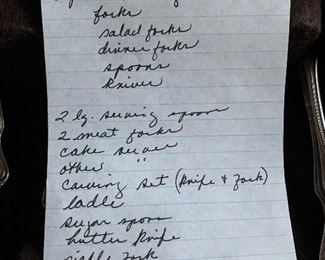 forks
salad forks
dinner forks
spoons
knives
2 lg. serving spoons
2 meat forks
cake server
other "
carving set (knife & fork)
ladle
sugar spoon
butter knife
pickle fork